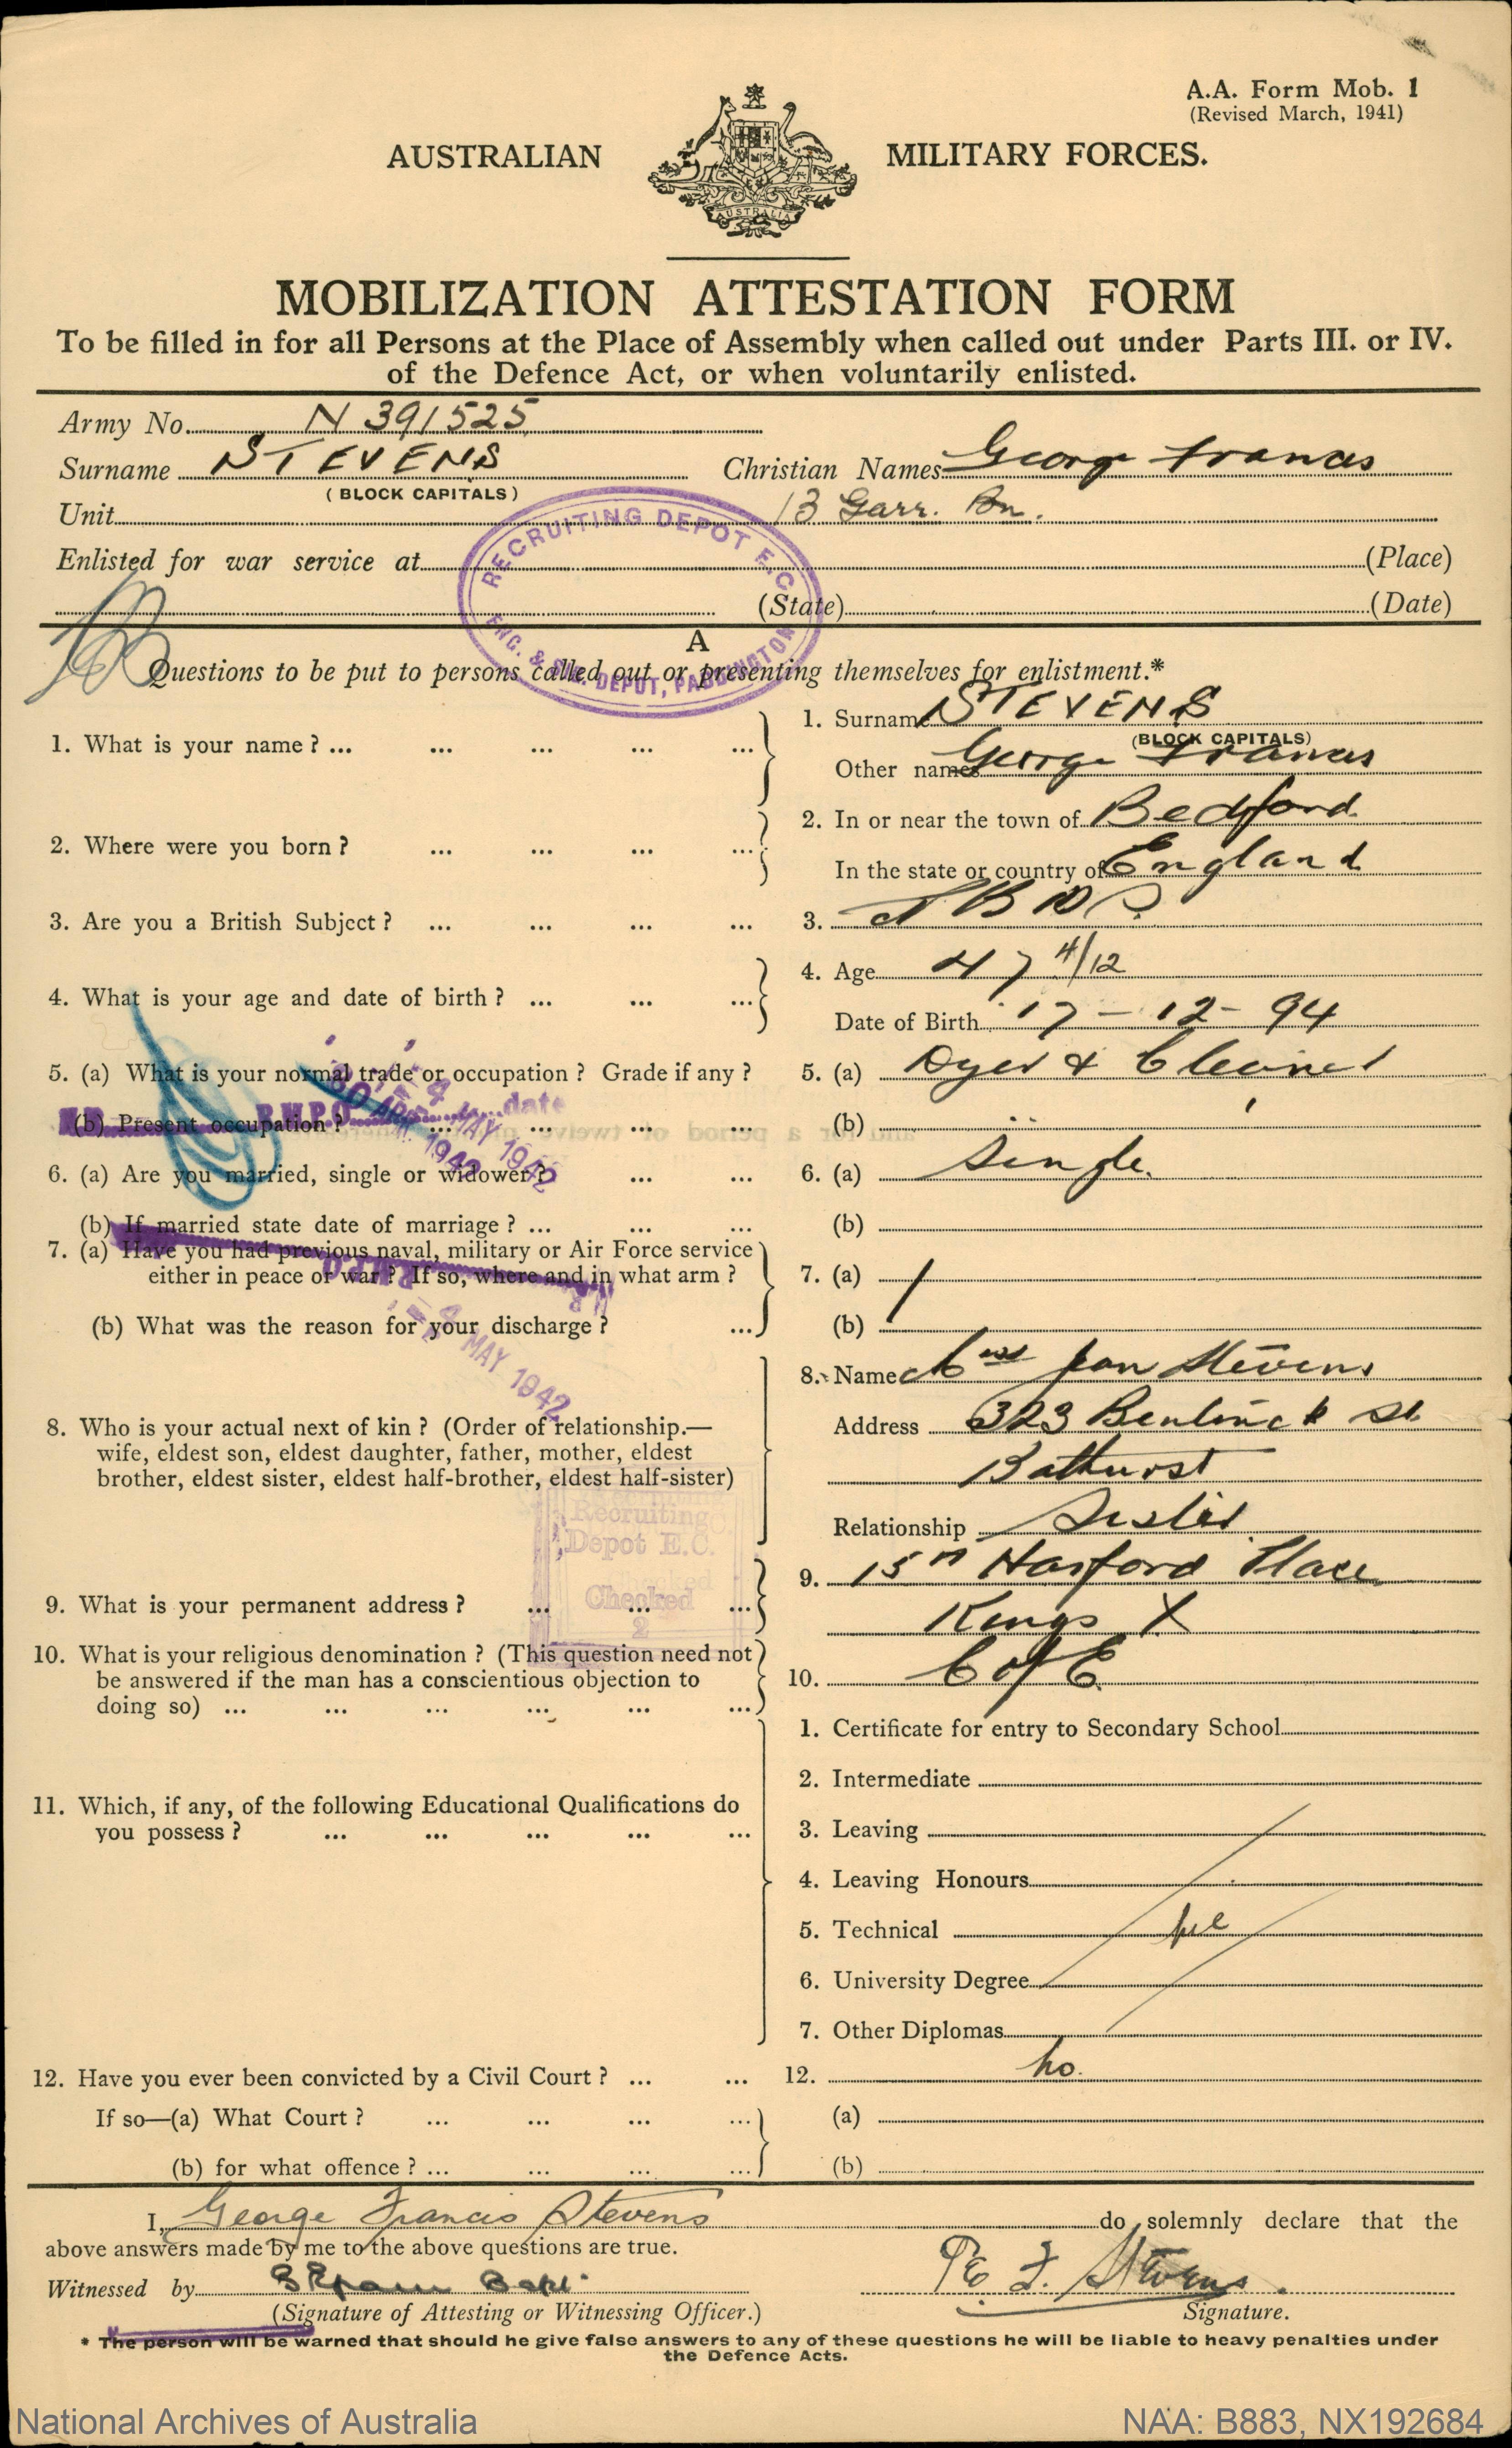 A.A. Form Mob. 1
(Revised March, 1941)
AUSTRALIAN MILITARY FORCES.
AUSTRALIA
MOBILIZATION ATTESTATION FORM
To be filled in for all Persons at the Place of Assembly when called out under Parts III. or IV.
of the Defence Act, or when voluntarily enlisted.
Army No. N 391525
Surname STEVENS Christian Names George Francis
(BLOCK CAPITALS)
Unit 13 Garr. Bn.
Enlisted for war service at (Place)
(State) (Date)
RECRUITING DEPOT E.C.
ENG. & SIG. DEPOT, PADDINGTON
A
Questions to be put to persons called out or presenting themselves for enlistment.*
1. What is your name? ... ... ... ... ...
1. Surname STEVENS
(BLOCK CAPITALS)
Other names George Francis
2. Where were you born? ... ... ... ...
2. In or near the town of Bedford
In the state or country of England
3. Are you a British Subject? ... ... ... ...
3. NBBS
4. What is your age and date of birth? ... ... ...
4. Age 47 4/12
Date of Birth 17-12-94
5. (a) What is your normal trade or occupation? Grade if any?
5. (a) Dyer & Cleaner
(b) Present occupation? ... ... ... ...
(b)
R.M.P.O. date
30 APR 1942
4 MAY 1942
6. (a) Are you married, single or widower? ... ...
6. (a) Single.
(b) If married state date of marriage? ... ... ...
(b)
7. (a) Have you had previous naval, military or Air Force service
either in peace or war? If so, where and in what arm?
7. (a) /
(b) What was the reason for your discharge? ...
(b)
R.M.P.O.
4 MAY 1942
8. Who is your actual next of kin? (Order of relationship.—
wife, eldest son, eldest daughter, father, mother, eldest
brother, eldest sister, eldest half-brother, eldest half-sister)
8. Name Stevens
Address 323 Bentinck St
Bathurst
Relationship Sister
Recruiting
Depot E.C.
Checked
2
9. What is your permanent address? ... ... ...
9. 15 Place
Kings X
10. What is your religious denomination? (This question need not
be answered if the man has a conscientious objection to
doing so) ... ... ... ... ... ...
10. C of E
11. Which, if any, of the following Educational Qualifications do
you possess? ... ... ... ... ...
1. Certificate for entry to Secondary School
2. Intermediate
3. Leaving
4. Leaving Honours
5. Technical
6. University Degree
7. Other Diplomas
12. Have you ever been convicted by a Civil Court? ... ...
12. no.
If so—(a) What Court? ... ... ... ...
(a)
(b) for what offence? ... ... ... ...
(b)
I, George Francis Stevens do solemnly declare that the
above answers made by me to the above questions are true.
Witnessed by Capt. G. F. Stevens.
(Signature of Attesting or Witnessing Officer.) Signature.
* The person will be warned that should he give false answers to any of these questions he will be liable to heavy penalties under
the Defence Acts.
National Archives of Australia NAA: B883, NX192684